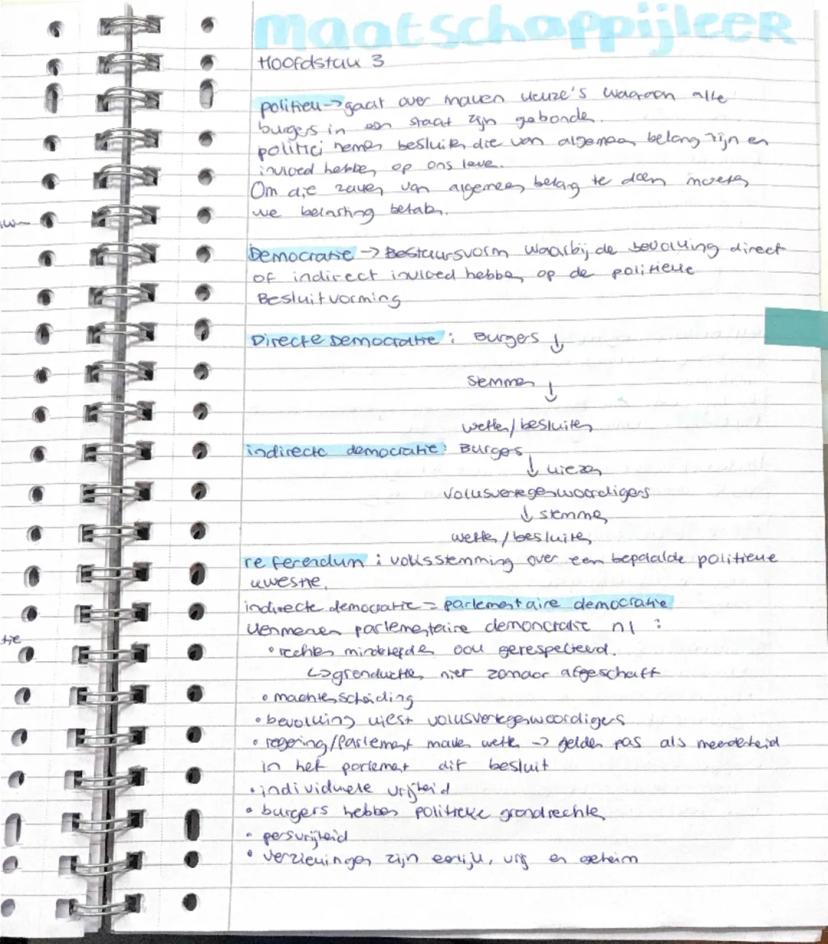 maatschappijleer
Hoofdstuk 3
politiek → gaat over maken keuze's waaraan alle
burgers in een staat zijn gebonden.
politici nemen besluiten die van algemeen belang zijn en
invloed hebben op ons leven.
Om die zaken van algemeen belang te doen moeten
we belasting betalen.
Democratie → Bestuursvorm waarbij de bevolking direct
of indirect invloed hebben op de politieke
Besluitvorming
Directe Democratie : Burgers ↓
stemmen ↓
wetten/besluiten
indirecte democratie: Burgers
↓ kiezen
volksvertegenwoordigers
↓ stemmen
wetten/besluiten
referendum : volksstemming over een bepaalde politieke
kwestie.
indirecte democratie = parlementaire democratie
kenmerken parlementaire democratie nl :
• rechten minderheden ook gerespecteerd.
↳ grondwetten niet zomaar afgeschaft
• machtenscheiding
• bevolking kiest volksvertegenwoordigers
• regering/Parlement maken wetten → gelden pas als meerderheid
in het parlement dit besluit
• individuele vrijheid
• burgers hebben politieke grondrechten
• persvrijheid
• verkiezingen zijn eerlijk, vrij en geheim